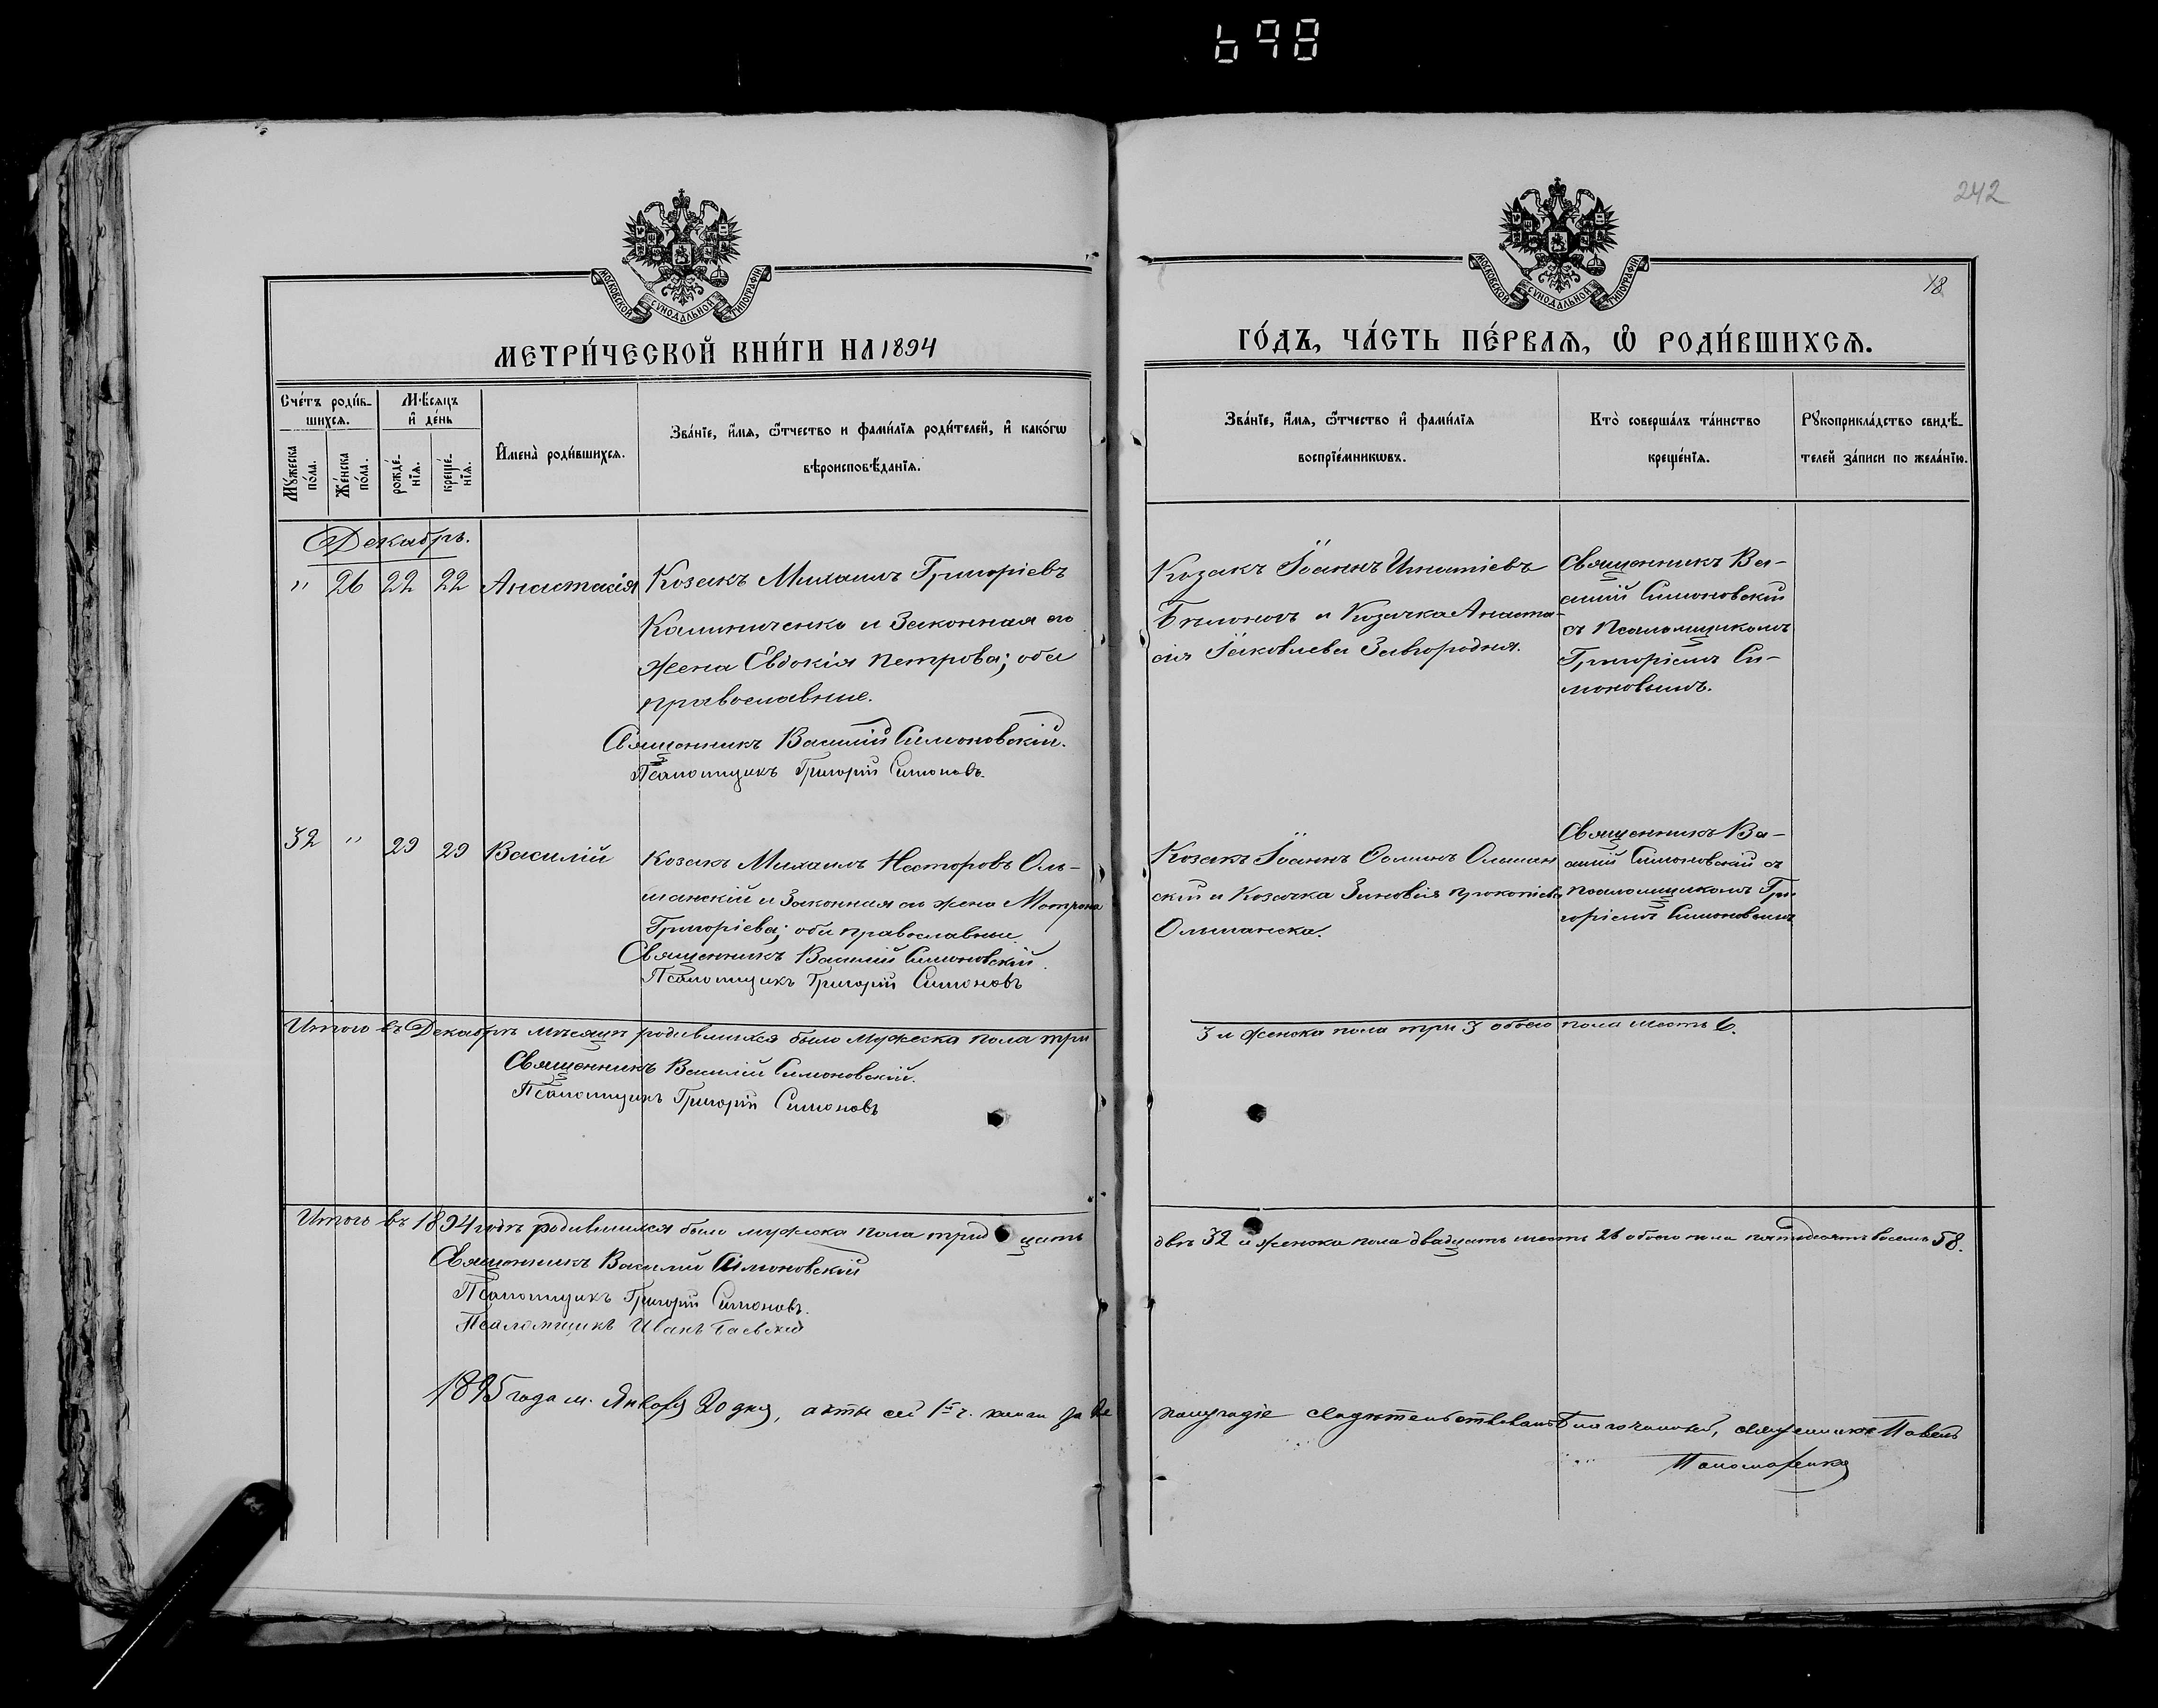 698
242
18
МОСКОВСКОЙ СѴНОДАЛЬНОЙ ТИПОГРАФІИ
МОСКОВСКОЙ СѴНОДАЛЬНОЙ ТИПОГРАФІИ
МЕТРИ́ЧЕСКОЙ КНИ́ГИ НА 1894
ГО́ДЪ, ЧА́СТЬ ПЕ́РВАѦ, Ѡ҆ РОДИ́ВШИХСѦ.
Сче́тъ роди́в-
шихсѧ.
Мꙋ́жеска
по́ла.
Же́нска
по́ла.
Мѣ́сѧцъ
и҆ де́нь
рожде́-
нїѧ.
креще́-
нїѧ.
И҆мена̀ роди́вшихсѧ.
Зва́нїе, и҆́мѧ, ѻ҆́тчество и фами́лїѧ роди́телей, и҆ како́гѡ
вѣроисповѣ́данїѧ.
Зва́нїе, и҆́мѧ, ѻ҆́тчество и҆ фами́лїѧ
воспрїе́мникѡвъ.
Кто̀ соверша́лъ та́инство
креще́нїѧ.
Рꙋкоприкла́дство свидѣ́-
телей за́писи по жела́нїю.
Декабрь.
" 26 22 22 Анастасія
Козакъ Михаилъ Григоріевъ
Калиниченко и Законная его
жена Евдокія Петрова; оба
православные.
Священникъ Василій Симоновскій.
Псаломщикъ Григорій Симоновъ.
Козакъ Іоаннъ Игнатіевъ
и Козачка Анаста-
сія Іаковлева Завгородня.
Священникъ Ва-
силій Симоновскій
съ Псаломщикомъ
Григоріемъ Си-
моновымъ.
32 " 29 29 Василій
Козакъ Михаилъ Несторовъ Оль-
шанскій и Законная его жена Матрона
Григоріева; оба православные.
Священникъ Василій Симоновскій.
Псаломщикъ Григорій Симоновъ
Козакъ Іоаннъ Ольшан
скій и Козачка Зиновія Прокопіева
Ольшанска.
Священникъ Ва-
силій Симоновскій съ
псаломщикомъ Гри
горіемъ Симоновымъ
Итого въ Декабрѣ мѣсяцѣ родившихся было мужеска пола три
3 и женска пола три 3 обоего пола шесть 6.
Священникъ Василій Симоновскій.
Псаломщикъ Григорій Симоновъ
Итого въ 1894 годѣ родившихся было мужеска пола тридцать
двѣ 32 и женска пола двадцать шесть 26 обоего пола пятьдесятъ восемь 58.
Священникъ Василій Симоновскій
Псаломщикъ Григорій Симоновъ.
Псаломщикъ Иванъ Гаевскій
1895 года м. Января 20 дня, акты сей 1й ч. книги за
свидѣтельствовалъ Благочинный, священникъ Павелъ
Пономаренко